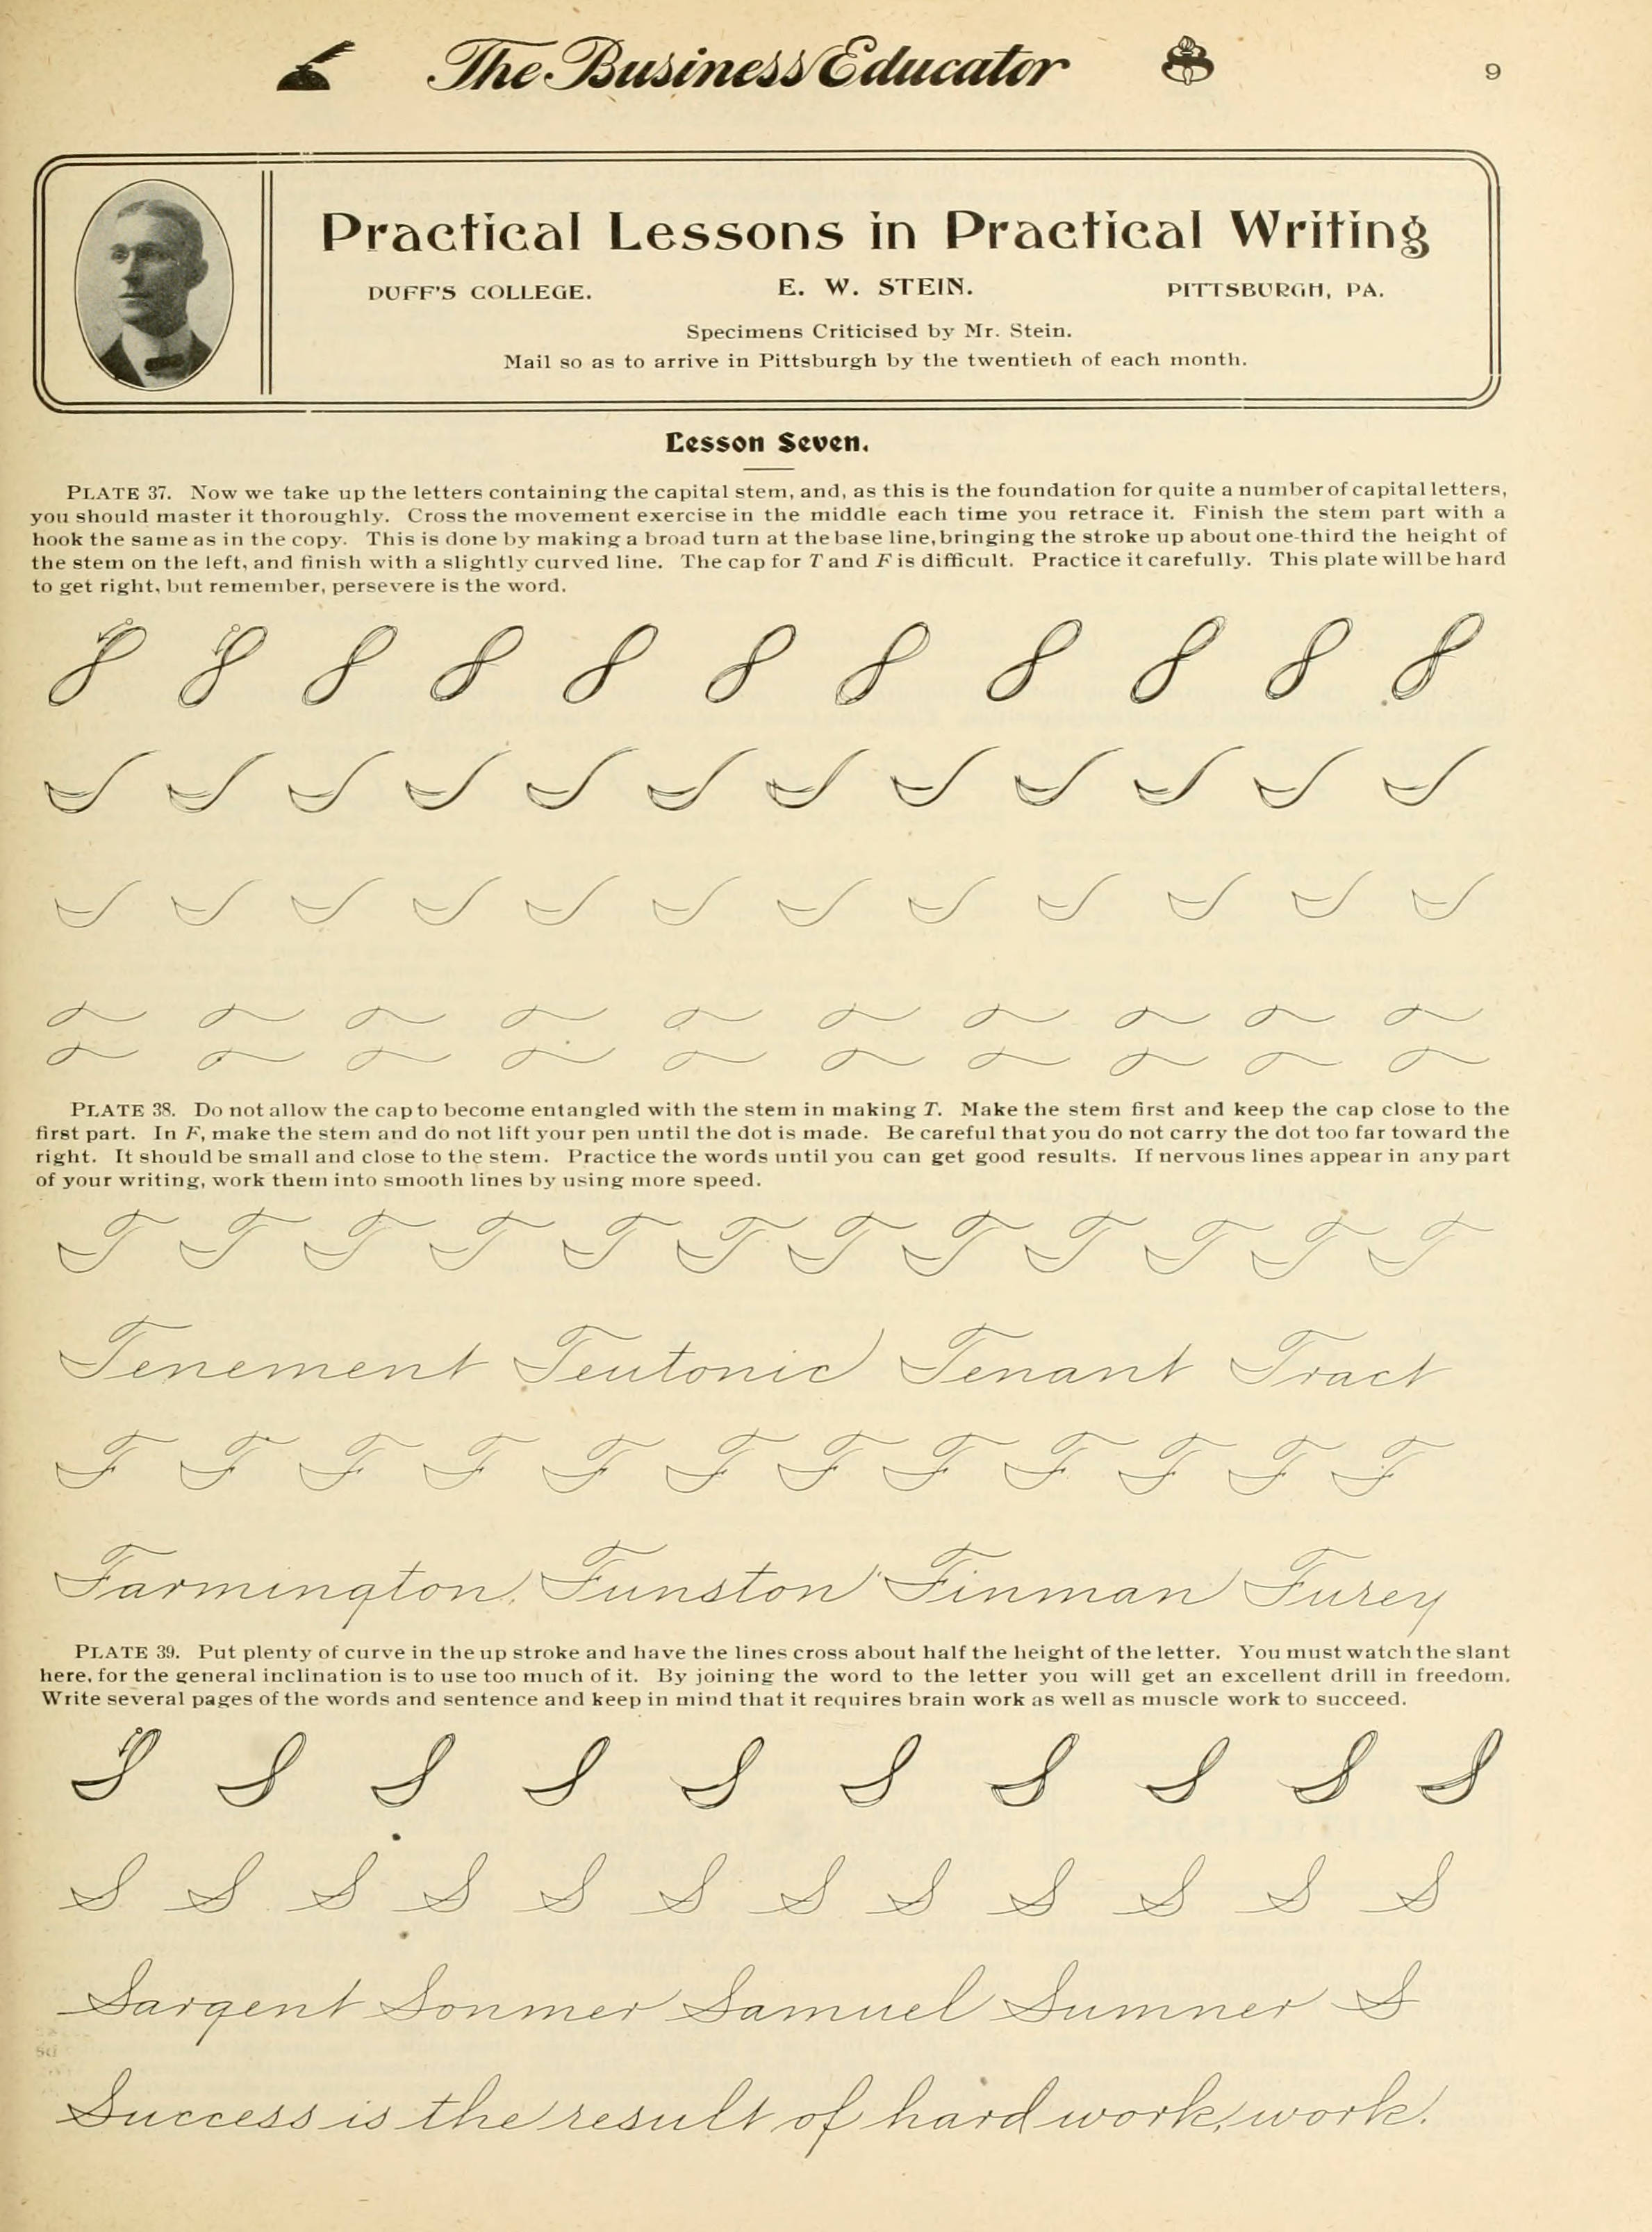 The Business Educator
9
Practical Lessons in Practical Writing
DUFF'S COLLEGE. E. W. STEIN. PITTSBURGH, PA.
Specimens Criticised by Mr. Stein.
Mail so as to arrive in Pittsburgh by the twentieth of each month.
Lesson Seven.
PLATE 37. Now we take up the letters containing the capital stem, and, as this is the foundation for quite a number of capital letters,
you should master it thoroughly. Cross the movement exercise in the middle each time you retrace it. Finish the stem part with a
hook the same as in the copy. This is done by making a broad turn at the base line, bringing the stroke up about one-third the height of
the stem on the left, and finish with a slightly curved line. The cap for T and F is difficult. Practice it carefully. This plate will be hard
to get right, but remember, persevere is the word.
PLATE 38. Do not allow the cap to become entangled with the stem in making T. Make the stem first and keep the cap close to the
first part. In F, make the stem and do not lift your pen until the dot is made. Be careful that you do not carry the dot too far toward the
right. It should be small and close to the stem. Practice the words until you can get good results. If nervous lines appear in any part
of your writing, work them into smooth lines by using more speed.
T T T T T T T T T T T T
Tenement Teutonic Tenant Tract
F F F F F F F F F F F F
Farmington, Funston Finman Furey
PLATE 39. Put plenty of curve in the up stroke and have the lines cross about half the height of the letter. You must watch the slant
here, for the general inclination is to use too much of it. By joining the word to the letter you will get an excellent drill in freedom.
Write several pages of the words and sentence and keep in mind that it requires brain work as well as muscle work to succeed.
S S S S S S S S S S
S S S S S S S S S S S S
Sargent Sonmer Samuel Sumner S
Success is the result of hard work, work.